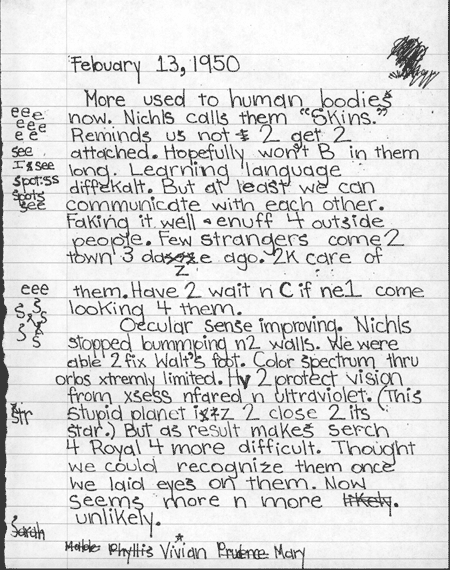 Febuary 13, 1950
More used to human bodies
eee now. Nichls calls them "Skins."
eee
ee Reminds us not 2 get 2
see attached. Hopefully won't B in them
I's see long. Learning language
spot:ss diffekalt. But at least we can
spots
see communicate with each other.
Faking it well enuff 4 outside
people. Few strangers come 2
town 3 daze ago. 2K care of
z
eee them. Have 2 wait n C if ne1 come
s s looking 4 them.
s s Occular sense improving. Nichls
s stopped bummping n2 walls. We were
able 2 fix Walt's foot. Color spectrum thru
orbs xtremly limited. Hv 2 protect vision
from xsess nfared n ultraviolet. (This
str stupid planet is 2 close 2 its
star.) But as result makes serch
4 Royal 4 more difficult. Thought
we could recognize them once
we laid eyes on them. Now
seems more n more likely.
unlikely.
Sarah
Mable Phyllis Vivian Prudence Mary